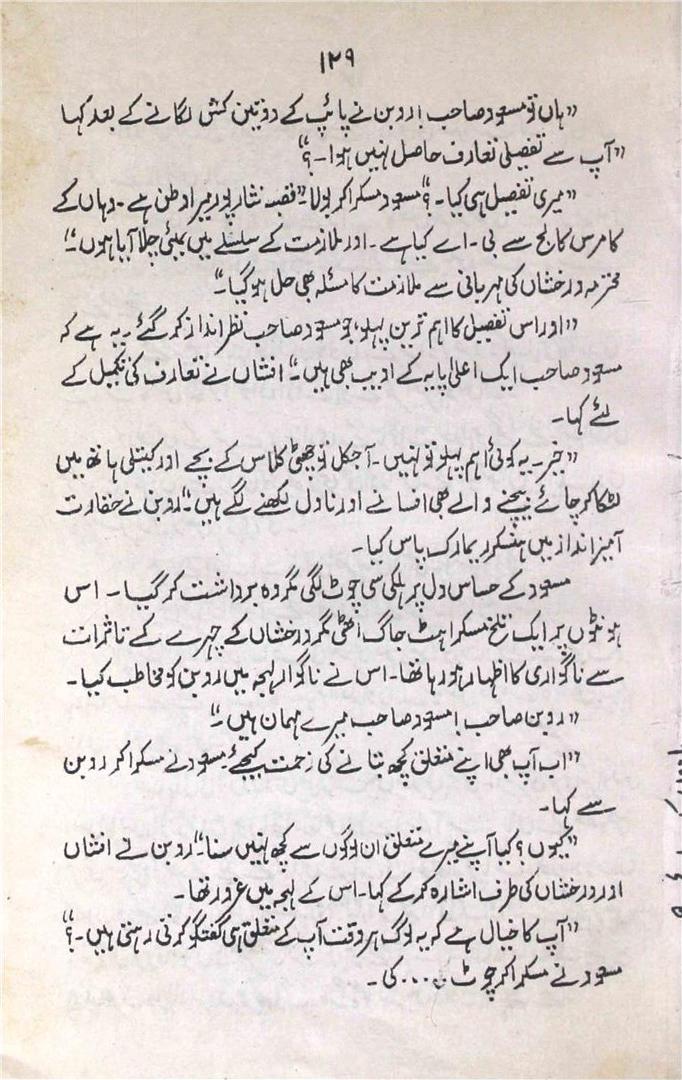 ۱۲۹
”ہاں تو مسعود صاحب! روبن نے پائپ کے دو تین کش لگانے کے بعد کہا
”آپ سے تفصیلی تعارف حاصل نہیں ہوا۔؟“
”میری تفصیل ہی کیا۔؟“ مسعود مسکرا کر بولا۔ ”قصبہ نثار پور میرا وطن ہے۔ وہاں کے
کامرس کالج سے بی۔ اے کیا ہے۔ اور ملازمت کے سلسلے میں بمبئی چلا آیا ہوں۔“!
محترمہ درخشاں کی مہربانی سے ملازمت کا مسئلہ بھی حل ہو گیا۔“
”اور اس تفصیل کا اہم ترین پہلو، جو مسعود صاحب نظر انداز کر گئے۔ یہ ہے کہ
مسعود صاحب ایک اعلیٰ پایہ کے ادیب بھی ہیں۔“ افشاں نے تعارف کی تکمیل کے
لئے کہا۔
”خیر۔ یہ کوئی اہم پہلو تو نہیں۔ آجکل تو چھٹی کلاس کے بچے اور کیتلی ہاتھ میں
لٹکا کر چائے بیچنے والے بھی افسانے اور ناول لکھنے لگے ہیں۔“ روبن نے حقارت
آمیز انداز میں ہنسکر ریمارک پاس کیا۔
مسعود کے حساس دل پر ہلکی سی چوٹ لگی مگر وہ برداشت کر گیا۔ اس
ہونٹوں پر ایک تلخ مسکراہٹ جاگ اٹھی مگر درخشاں کے چہرے کے تاثرات
سے ناگواری کا اظہار ہو رہا تھا۔ اس نے ناگوار لہجہ میں روبن کو مخاطب کیا۔
”روبن صاحب! مسعود صاحب میرے مہمان ہیں۔“
”اب آپ بھی اپنے متعلق کچھ بتانے کی زحمت کیجئے۔ مسعود نے مسکرا کر روبن
سے کہا۔
”کیوں؟ کیا آپنے میرے متعلق ان لوگوں سے کچھ نہیں سنا۔“ روبن نے افشاں
اور درخشاں کی طرف اشارہ کر کے کہا۔ اس کے لہجہ میں غرور تھا۔
”آپ کا خیال ہے کہ یہ لوگ ہر وقت آپ کے متعلق ہی گفتگو کرتی رہتی ہیں۔؟“
مسعود نے مسکرا کر چوٹ ... کی۔